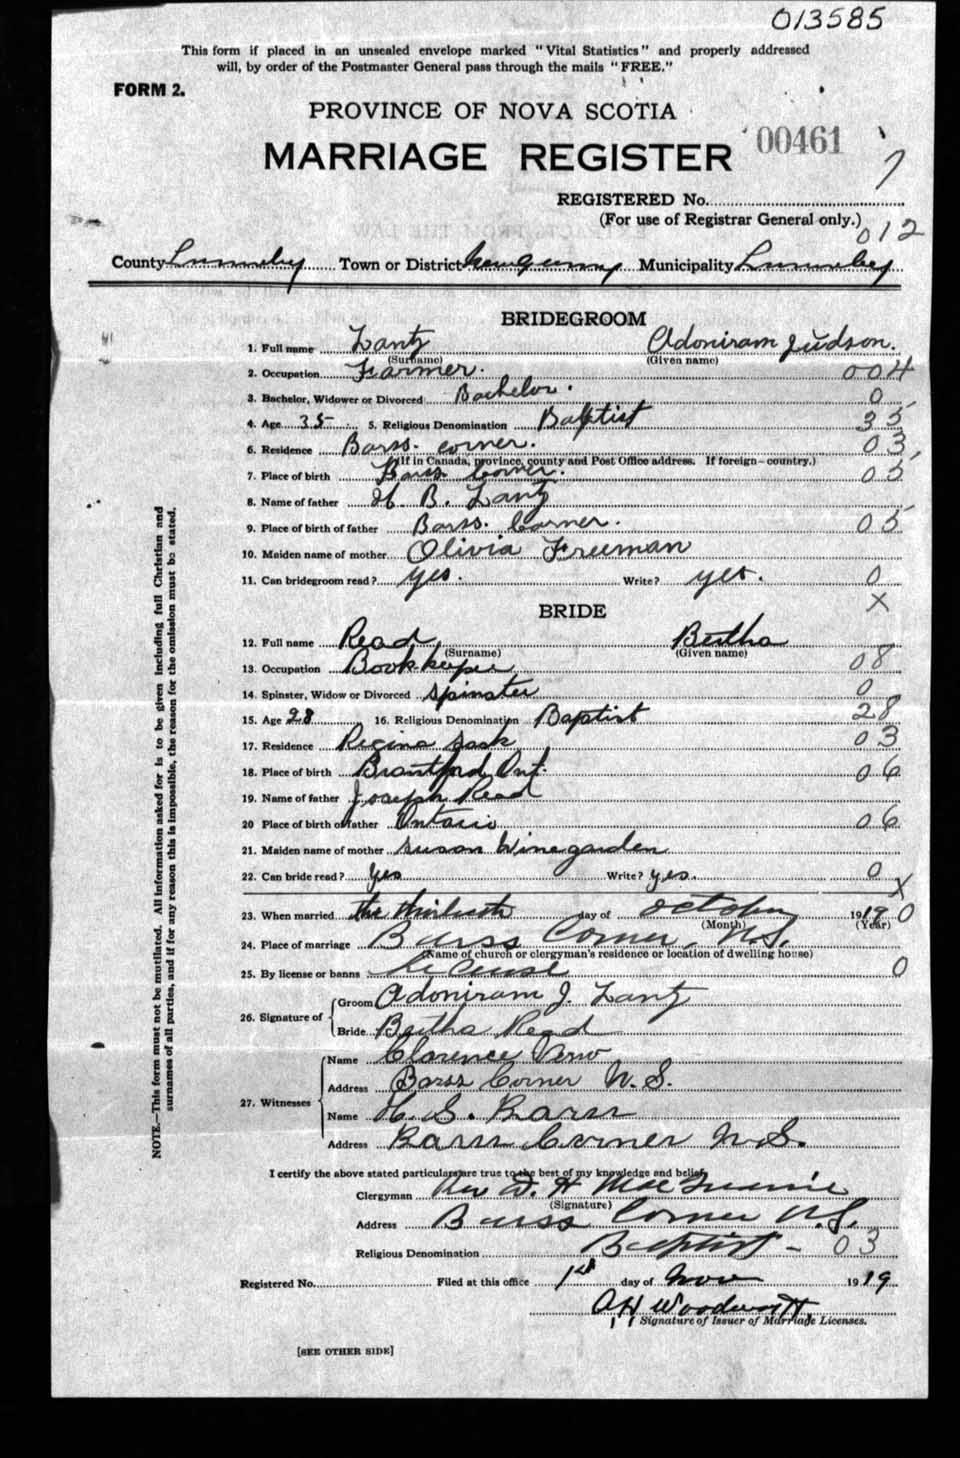 013585
This form if placed in an unsealed envelope marked "Vital Statistics" and properly addressed
will, by order of the Postmaster General pass through the mails "FREE."
FORM 2.
PROVINCE OF NOVA SCOTIA
00461
MARRIAGE REGISTER
7
REGISTERED No.
(For use of Registrar General only.)
012
County Lunenburg Town or District Municipality Lunenburg
BRIDEGROOM
1. Full name Lantz Adoniram Judson.
(Surname) (Given name)
2. Occupation Farmer. 004
3. Bachelor, Widower or Divorced Bachelor. 0
4. Age 35 5. Religious Denomination Baptist 35
6. Residence Barss. corner. 03
(If in Canada, province, county and Post Office address. If foreign—country.)
7. Place of birth Barss Corner. 05
8. Name of father H. B. Lantz
9. Place of birth of father Barss. Corner. 05
10. Maiden name of mother Olivia Freeman
11. Can bridegroom read? yes. Write? yes. 0
X
BRIDE
12. Full name Read Bertha
(Surname) (Given name)
13. Occupation Bookkeeper 08
14. Spinster, Widow or Divorced Spinster 0
15. Age 28 16. Religious Denomination Baptist 28
17. Residence Regina Sask 03
18. Place of birth Brantford Ont. 06
19. Name of father Joseph Read
20 Place of birth of father Ontario 06
21. Maiden name of mother Susan Winegarden
22. Can bride read? Yes Write? yes. 0
X
23. When married the thirtieth day of October 1919 0
(Month) (Year)
24. Place of marriage Barss Corner, N.S.
(Name of church or clergyman's residence or location of dwelling house)
25. By license or banns License 0
26. Signature of
Groom Adoniram J. Lantz
Bride Bertha Read
27. Witnesses
Name Clarence
Address Barss Corner N.S.
Name H. S. Barss
Address Barss Corner N.S.
I certify the above stated particulars are true to the best of my knowledge and belief.
Clergyman Rev D. H.
(Signature)
Address Barss Corner N.S.
Religious Denomination Baptist - 03
Registered No. Filed at this office 1st day of Nov 1919
A H Woodworth
Signature of Issuer of Marriage Licenses.
[SEE OTHER SIDE]
NOTE.—This form must not be mutilated. All information asked for is to be given including full Christian and
surnames of all parties, and if for any reason this is impossible, the reason for the omission must be stated.